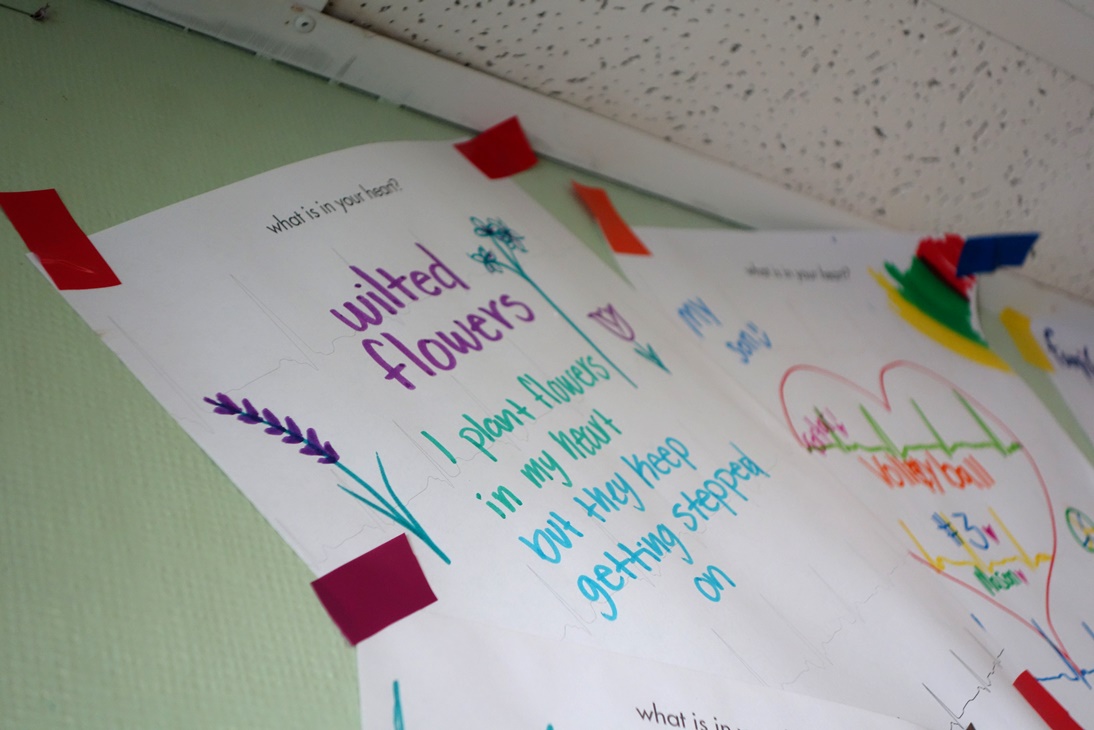 what is in your heart?
wilted
flowers
I plant flowers
in my heart
but they keep
getting stepped
on
what is in your heart?
my
Volleyball
#3
what is in